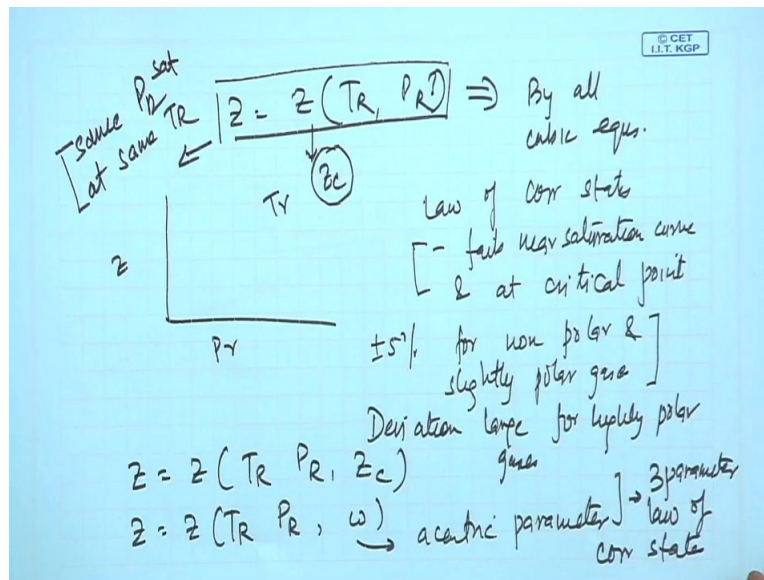 © CET
I.I.T. KGP
same P_R^sat
at same TR
Z = Z (TR, PR) ⇒ By all
cubic eqns.
Zc
Tr
Z
Pr
Law of Corr states
- fails near saturation curve
& at critical point
±5% for non polar &
slightly polar gase
Deviation large for highly polar
gases
Z = Z ( TR PR, Zc )
Z = Z (TR PR, ω)
→ acentric parameter
→ 3 parameter
law of
corr state